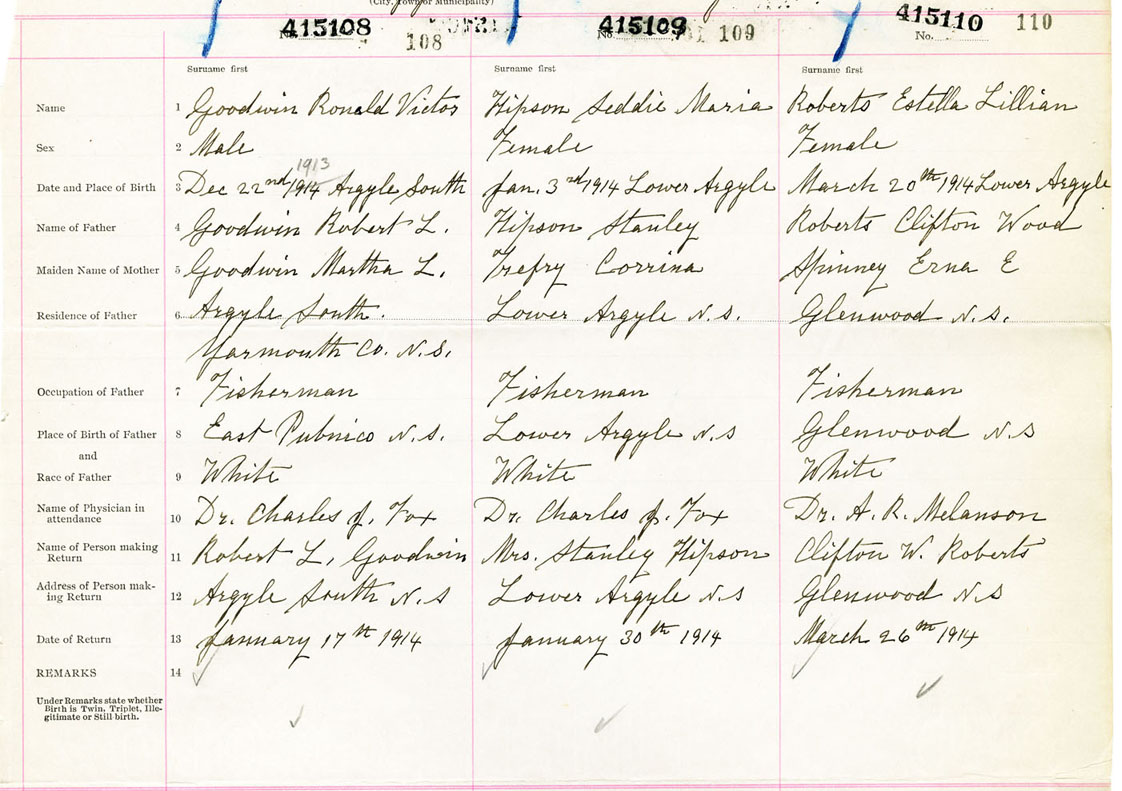 (City, Town or Municipality)
No. 415108 108
No. 415109 109
415110 110
No.
Surname first Surname first Surname first
Name 1 Goodwin Ronald Victor Hipson Seddie Maria Roberts Estella Lillian
Sex 2 Male Female Female
1913
Date and Place of Birth 3 Dec 22nd 1914 Argyle South Jan. 3rd 1914 Lower Argyle March 20th 1914 Lower Argyle
Name of Father 4 Goodwin Robert L. Hipson Stanley Roberts Clifton Wood
Maiden Name of Mother 5 Goodwin Martha L. Trefry Corrina Spinney Erna E
Residence of Father 6 Argyle South. Lower Argyle N.S. Glenwood N.S.
Yarmouth Co. N.S.
Occupation of Father 7 Fisherman Fisherman Fisherman
Place of Birth of Father 8 East Pubnico N.S. Lower Argyle N.S Glenwood N.S
and
Race of Father 9 White White White
Name of Physician in
attendance 10 Dr. Charles J. Fox Dr. Charles J. Fox Dr. A. R. Melanson
Name of Person making
Return 11 Robert L, Goodwin Mrs. Stanley Hipson Clifton W. Roberts
Address of Person mak-
ing Return 12 Argyle South N.S Lower Argyle N.S Glenwood N.S
Date of Return 13 January 17th 1914 January 30th 1914 March 26th 1914
REMARKS 14
Under Remarks state whether
Birth is Twin, Triplet, Ille-
gitimate or Still birth.